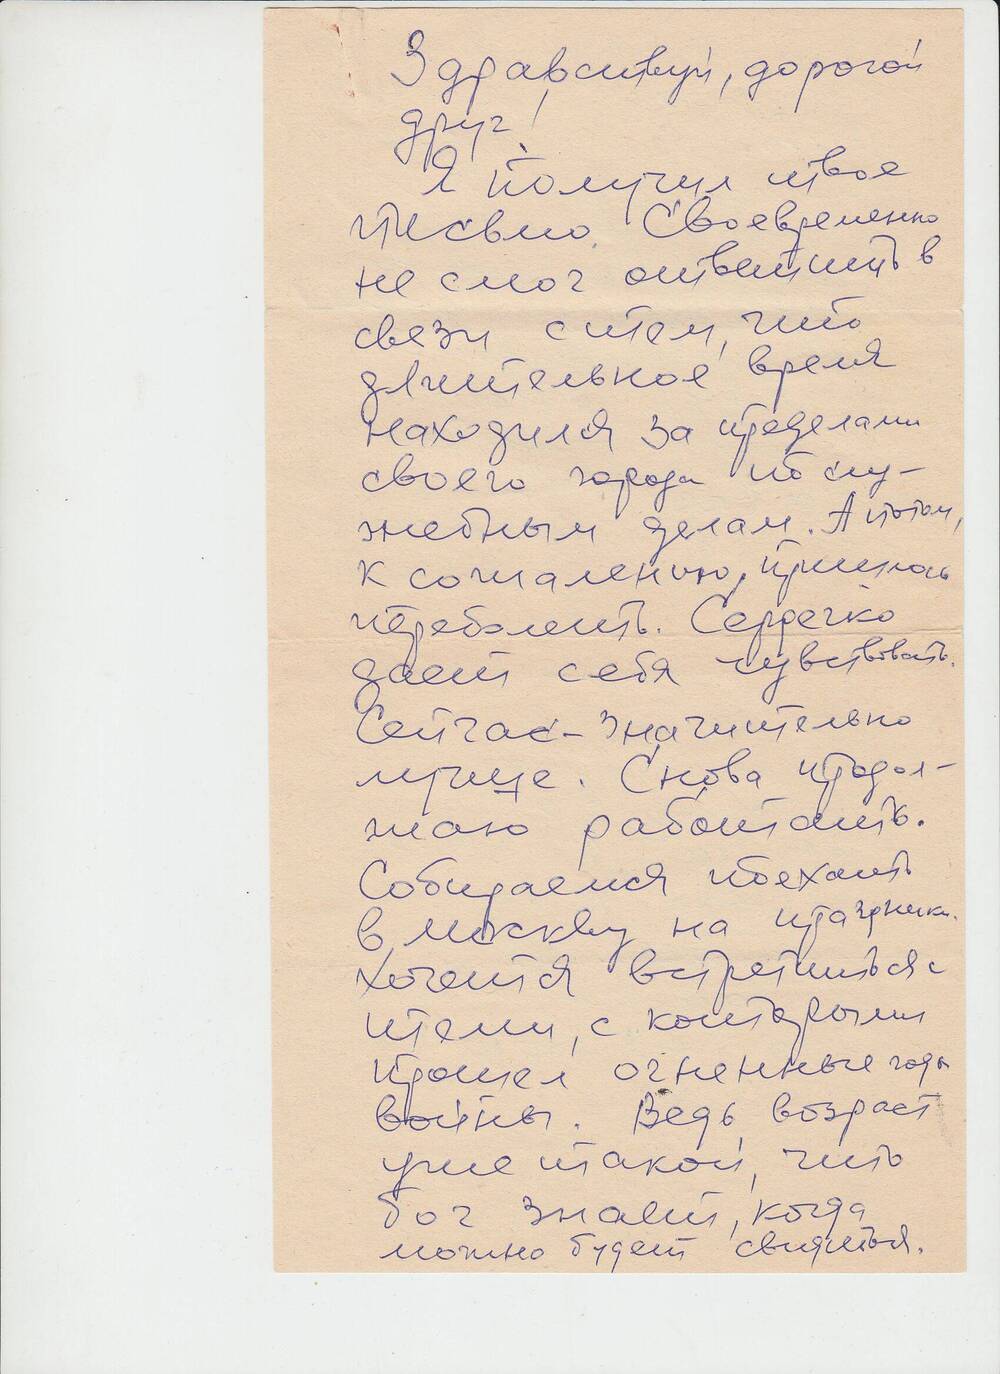 Здравствуй, дорогой
друг!
Я получил твое
письмо. Своевременно
не смог ответить в
связи с тем, что
длительное время
находился за пределами
своего города по слу-
жебным делам. А потом,
к сожалению, пришлось
переболеть. Сердечко
дает себя чувствовать.
Сейчас - значительно
лучше. Снова продол-
жаю работать.
Собираемся поехать
в Москву на праздники.
Хочется встретиться с
теми, с которыми
прошел огненные годы
войны. Ведь возраст
уже такой, что
бог знает, когда
можно будет свидиться.